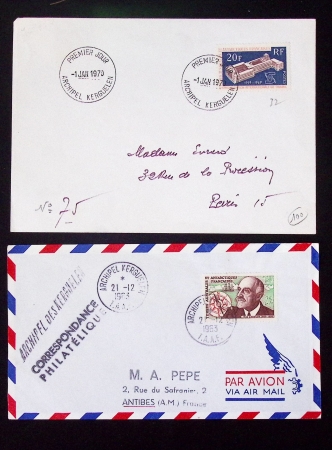 PREMIER JOUR
-1 JAN 1970
ARCHIPEL KERGUELEN
PREMIER JOUR
-1 JAN 1970
ARCHIPEL KERGUELEN
20F
RF
32
Madame
32 Rue de la Procession
Paris 15
No: 75
100
ARCHIPEL DES KERGUELEN
CORRESPONDANCE
PHILATÉLIQUE
ARCHIPEL KERGUELEN
*
21-12
1963
T.A.A.F.
ARCHIPEL
21-12
1963
T.A.A.F.
ANTARCTIQUES
FRANÇAISES
M. A. PEPE
2, Rue du Safranier, 2
ANTIBES (A.M.) France
PAR AVION
VIA AIR MAIL